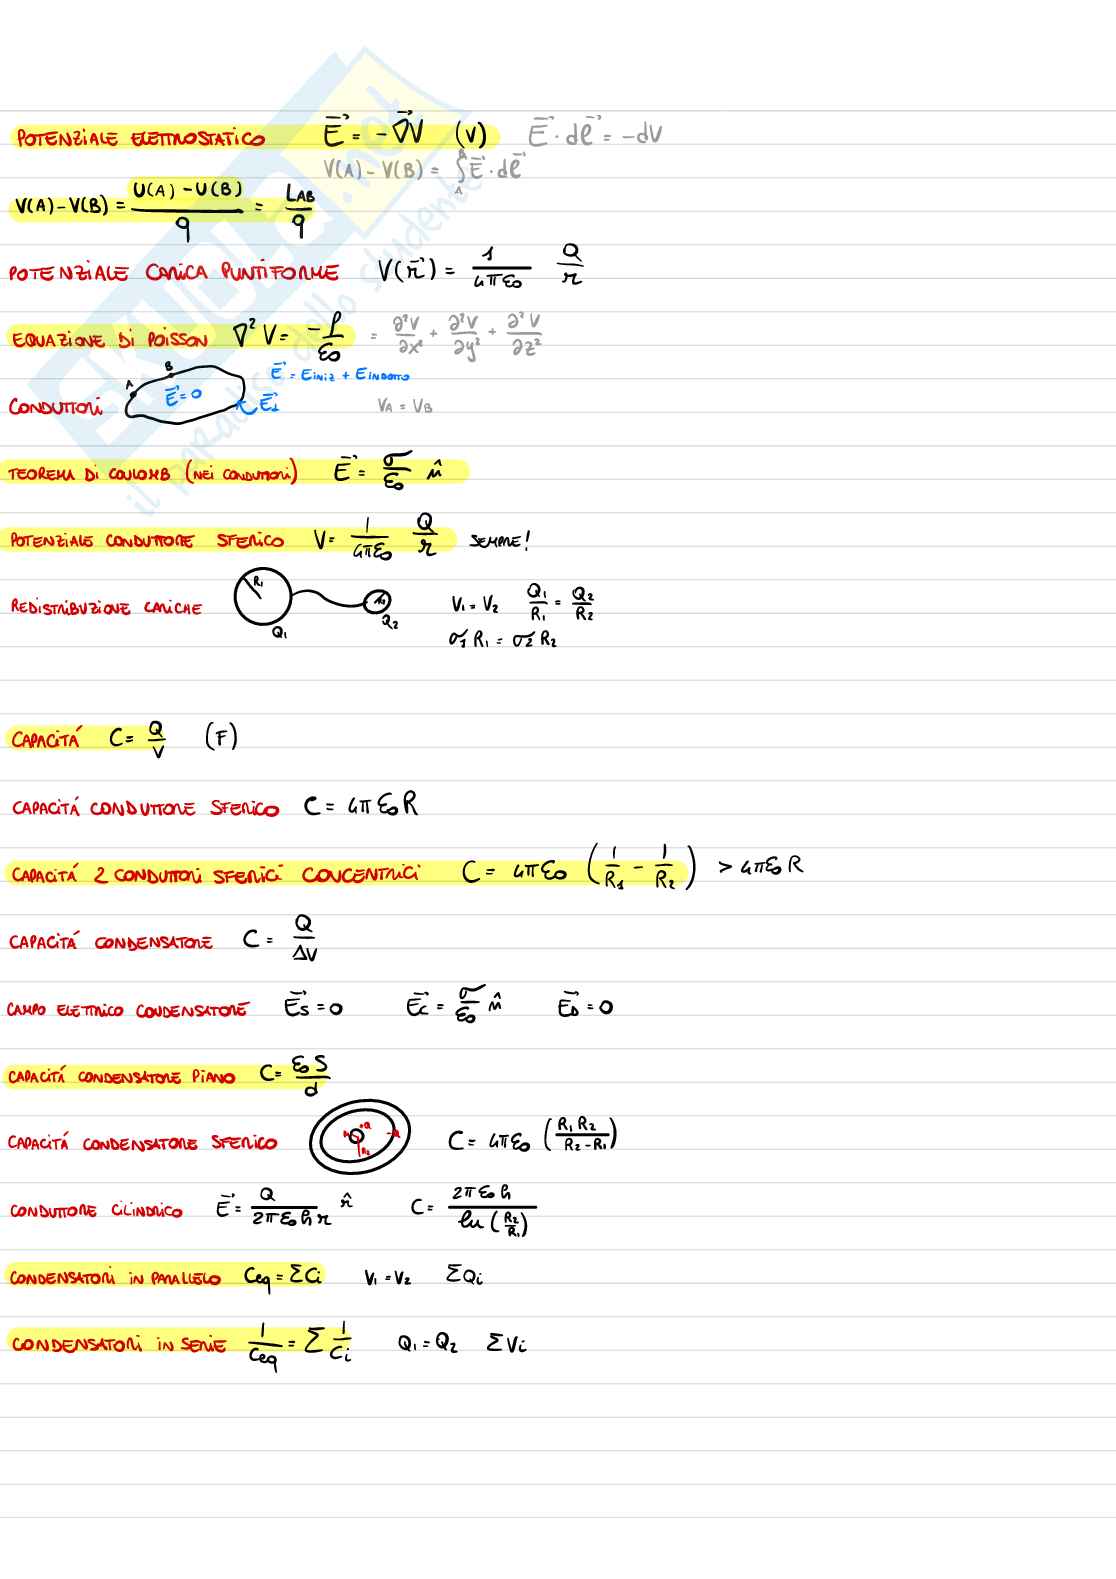 POTENZIALE ELETTROSTATICO E⃗ = -∇⃗V (V) E⃗ · dl⃗ = -dV
V(A) - V(B) = ∫_A^B E⃗ · dl⃗
V(A) - V(B) = (U(A) - U(B))/q = L_AB/q
POTENZIALE CARICA PUNTIFORME V(r⃗) = 1/(4πε₀) Q/r
EQUAZIONE DI POISSON ∇² V = -ρ/ε₀ = ∂²V/∂x² + ∂²V/∂y² + ∂²V/∂z²
A B E⃗ = E_INIZ + E_INDOTTO
CONDUTTORI E⃗ = 0 E⃗i V_A = V_B
TEOREMA DI COULOMB (NEI CONDUTTORI) E⃗ = σ/ε₀ n̂
POTENZIALE CONDUTTORE SFERICO V = 1/(4πε₀) Q/r SEMPRE!
REDISTRIBUZIONE CARICHE R₁ Q₁ Q₂ V₁ = V₂ Q₁/R₁ = Q₂/R₂
σ₁ R₁ = σ₂ R₂
CAPACITÁ C = Q/V (F)
CAPACITÁ CONDUTTORE SFERICO C = 4π ε₀ R
CAPACITÁ 2 CONDUTTORI SFERICI CONCENTRICI C = 4πε₀ (1/R₁ - 1/R₂) > 4πε₀ R
CAPACITÁ CONDENSATORE C = Q/ΔV
CAMPO ELETTRICO CONDENSATORE E⃗s = 0 E⃗c = σ/ε₀ n̂ E⃗D = 0
CAPACITÁ CONDENSATORE PIANO C = ε₀ S/d
CAPACITÁ CONDENSATORE SFERICO R₂ C = 4πε₀ (R₁ R₂/(R₂ - R₁))
CONDUTTORE CILINDRICO E⃗ = Q/(2πε₀ h r) r̂ C = 2π ε₀ h/ln(R₂/R₁)
CONDENSATORI IN PARALLELO Ceq = ΣCi V₁ = V₂ ΣQi
CONDENSATORI IN SERIE 1/Ceq = Σ 1/Ci Q₁ = Q₂ ΣVi
il paradiso dello studente